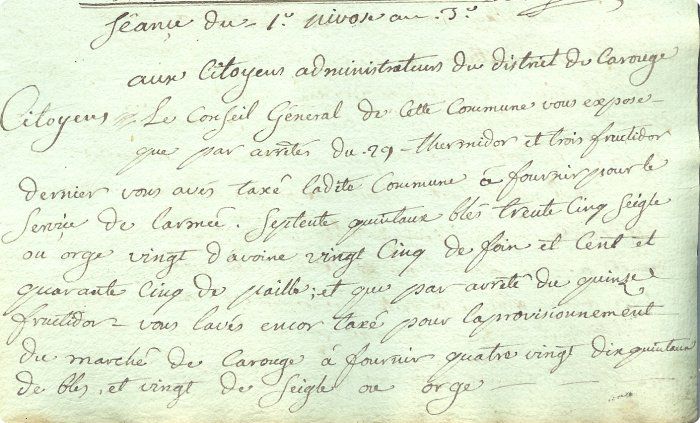 Séance du 1.er nivose an 3.e
aux Citoyens administrateurs du district de Carouge
Citoyens Le Conseil Général de Cette Commune vous expose
que par arrêtés du 29 thermidor et trois fructidor
dernier vous aves taxé ladite Commune à fournir pour le
Service de larmée. Septente quintaux blés trente Cinq Seigle
ou orge vingt d'avoine vingt Cinq de foin et Cent et
quarante Cinq de paille, et que par arrêté du quinze
fructidor vous lavés encor taxé pour laprovisionnement
du marché de Carouge à fournir quatre vingt dix quintaux
de blés, et vingt de Seigle ou orge